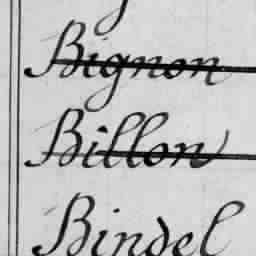 Bignon
Billon
Bindel